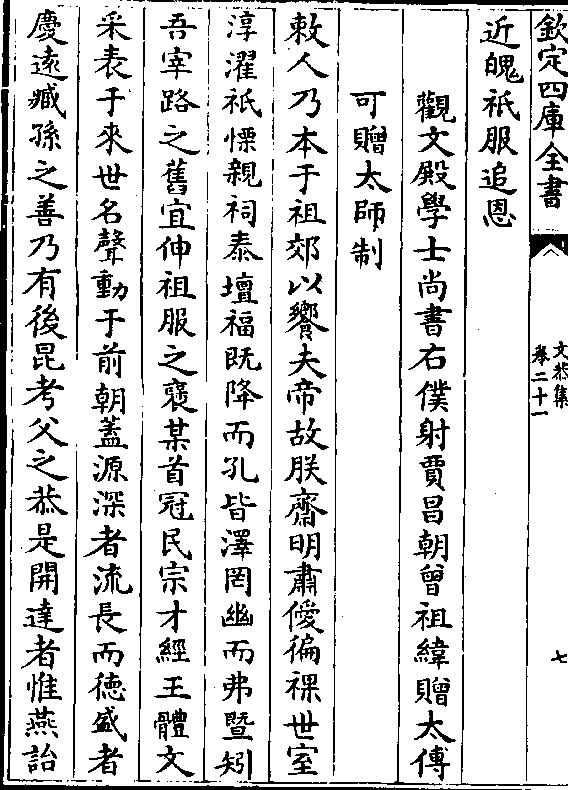 欽定四庫全書
文恭集
卷二十一
七
近媿祇服追恩
觀文殿學士尚書右僕射賈昌朝曾祖緯贈太傅
可贈太師制
敕人乃本于祖郊以饗夫帝故朕齋明肅僾徧祼世室
淳濯祇慄親祠泰壇福既降而孔皆澤罔幽而弗暨矧
吾宰路之舊宜伸祖服之襃某首冠民宗才經王體文
采表于來世名聲動于前朝蓋源深者流長而德盛者
慶遠臧孫之善乃有後昆考父之恭是開達者惟燕詒